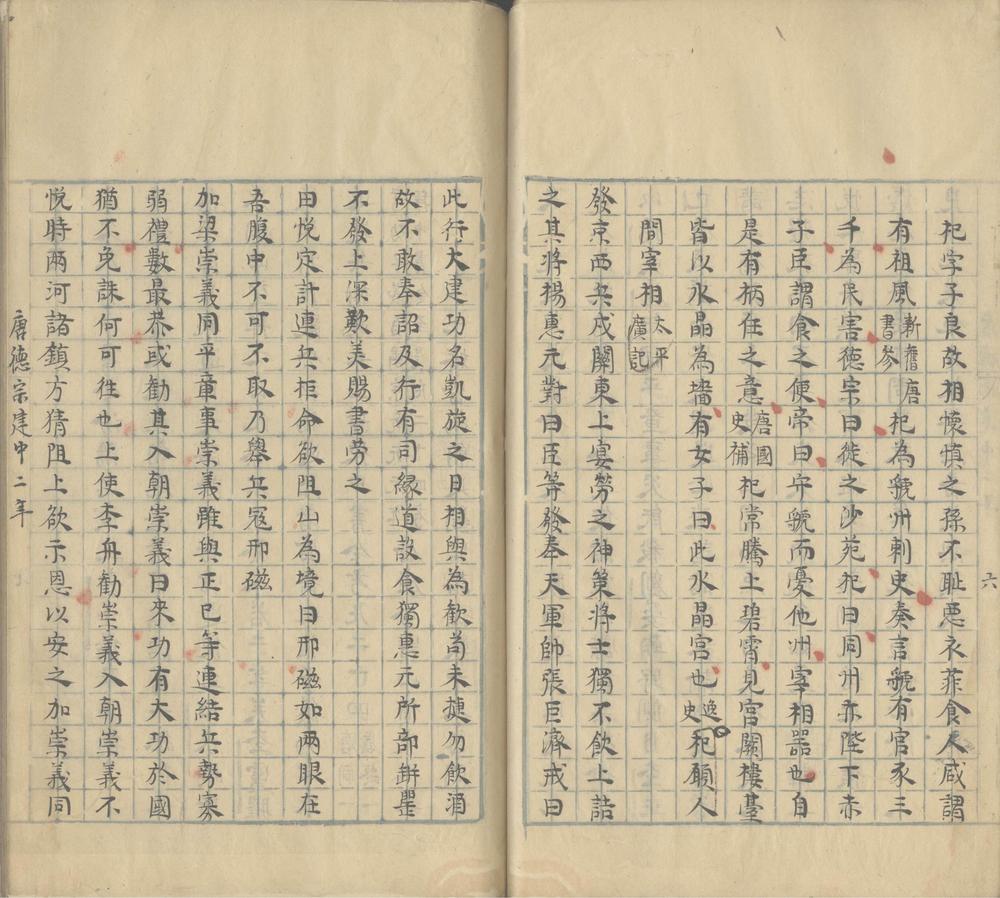 杞字子良故相懷慎之孫不耻惡衣菲食人咸謂
有祖風新舊唐書參杞為虢州刺史奏言虢有官豕三
千為民害德宗曰徙之沙苑杞曰同州亦陛下赤
子臣謂食之便帝曰守虢而憂他州宰相器也自
是有柄任之意唐國史補杞常騰上碧霄見宮闕樓臺
皆以水晶為墻有女子曰此水晶宮也逸史杞願人
間宰相太平廣記
發京西兵戍關東上宴勞之神策將士獨不飲上詰
之其將揚惠元對曰臣等發奉天軍帥張巨濟戒曰
六
此行大建功名凱旋之日相與為歡苟未捷勿飲酒
故不敢奉詔及行有司緣道設食獨惠元所部缾罌
不發上深歎美賜書勞之
田悅定計連兵拒命欲阻山為境曰邢磁如兩眼在
吾腹中不可不取乃舉兵寇邢磁
加梁崇義同平章事崇義雖與正已等連結兵勢寡
弱禮數最恭或勸其入朝崇義曰來功有大功於國
猶不免誅何可往也上使李舟勸崇義入朝崇義不
悅時兩河諸鎮方猜阻上欲示恩以安之加崇義同
唐德宗建中二年